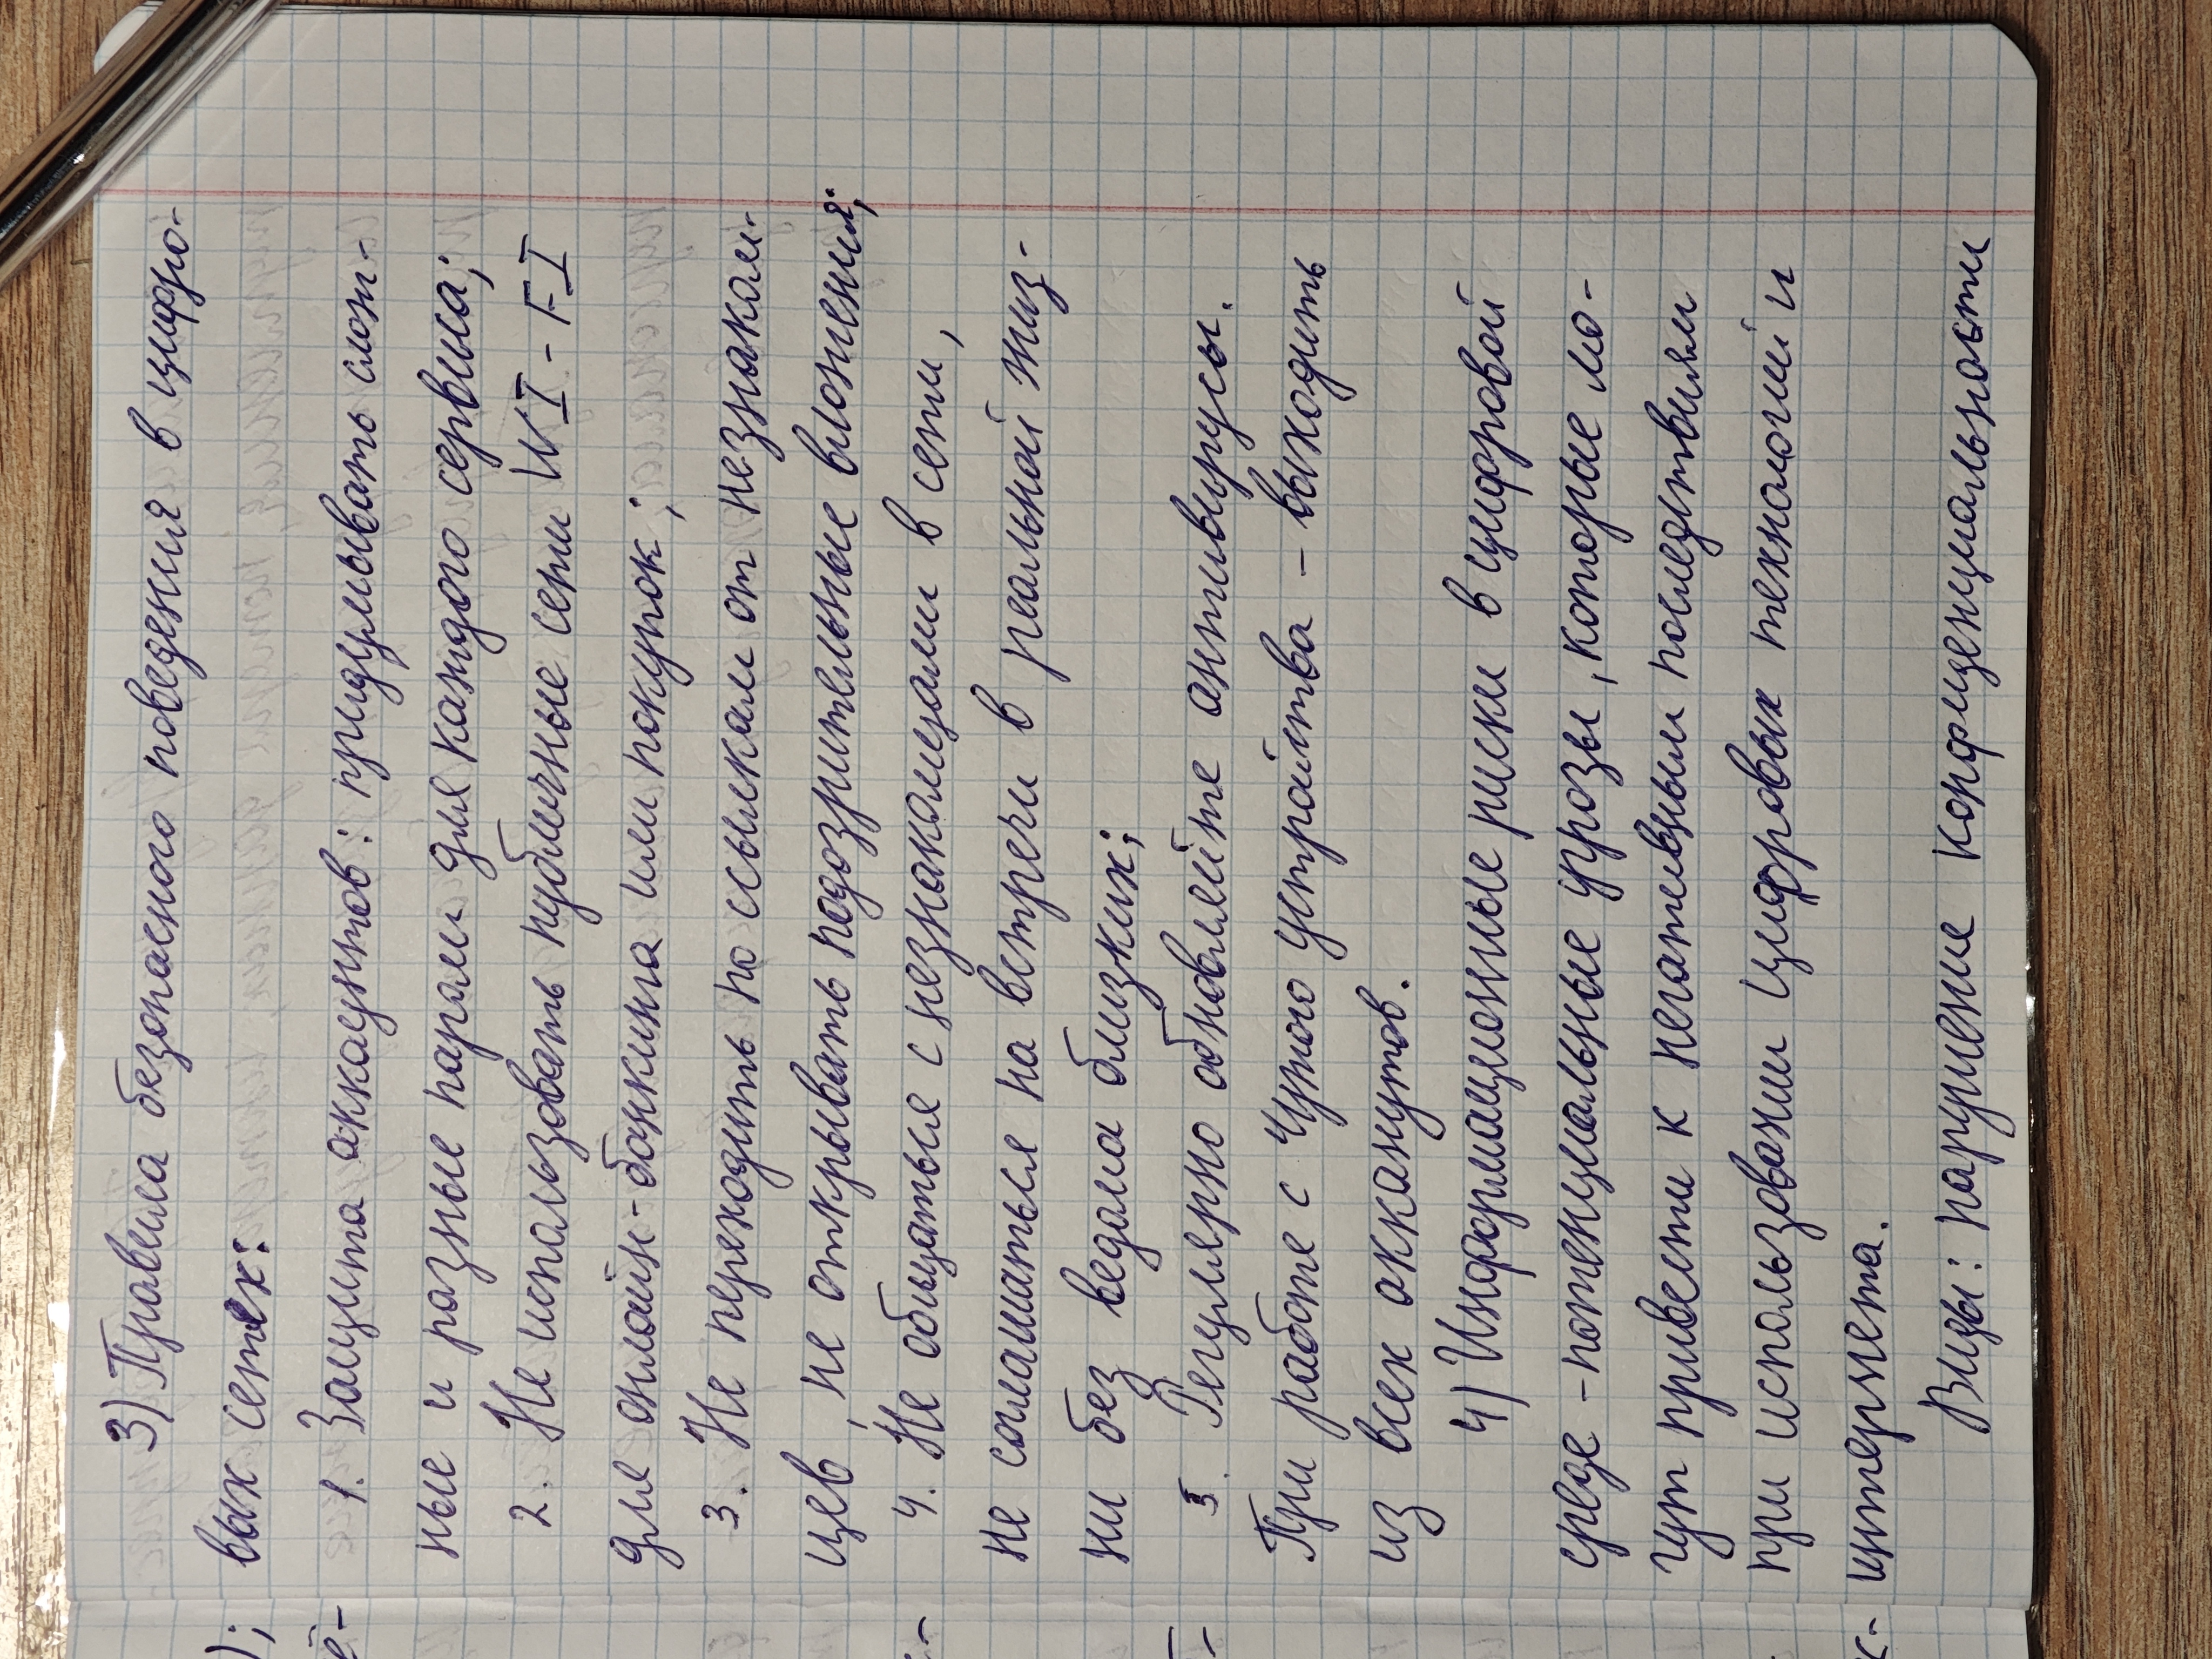 3) Правила безопасного поведения в цифро-
вых сетях:
1. Защита аккаунтов: придумывать слож-
ные и разные пароли для каждого сервиса;
2. Не использовать публичные сети WI-FI
для онлайн-банкинга или покупок;
3. Не переходить по ссылкам от незнаком-
цев, не открывать подозрительные вложения;
4. Не общаться с незнакомцами в сети,
не соглашаться на встречи в реальной жиз-
ни без ведома близких;
5. Регулярно обновляйте антивирусы.
При работе с чужого устройства - выходить
из всех акканутов.
4) Информационные риски в цифровой
среде - потенциальные угрозы, которые мо-
гут привести к негативным последствиям
при использовании цифровых технологий и
интернета.
Виды: нарушение конфиденциальности